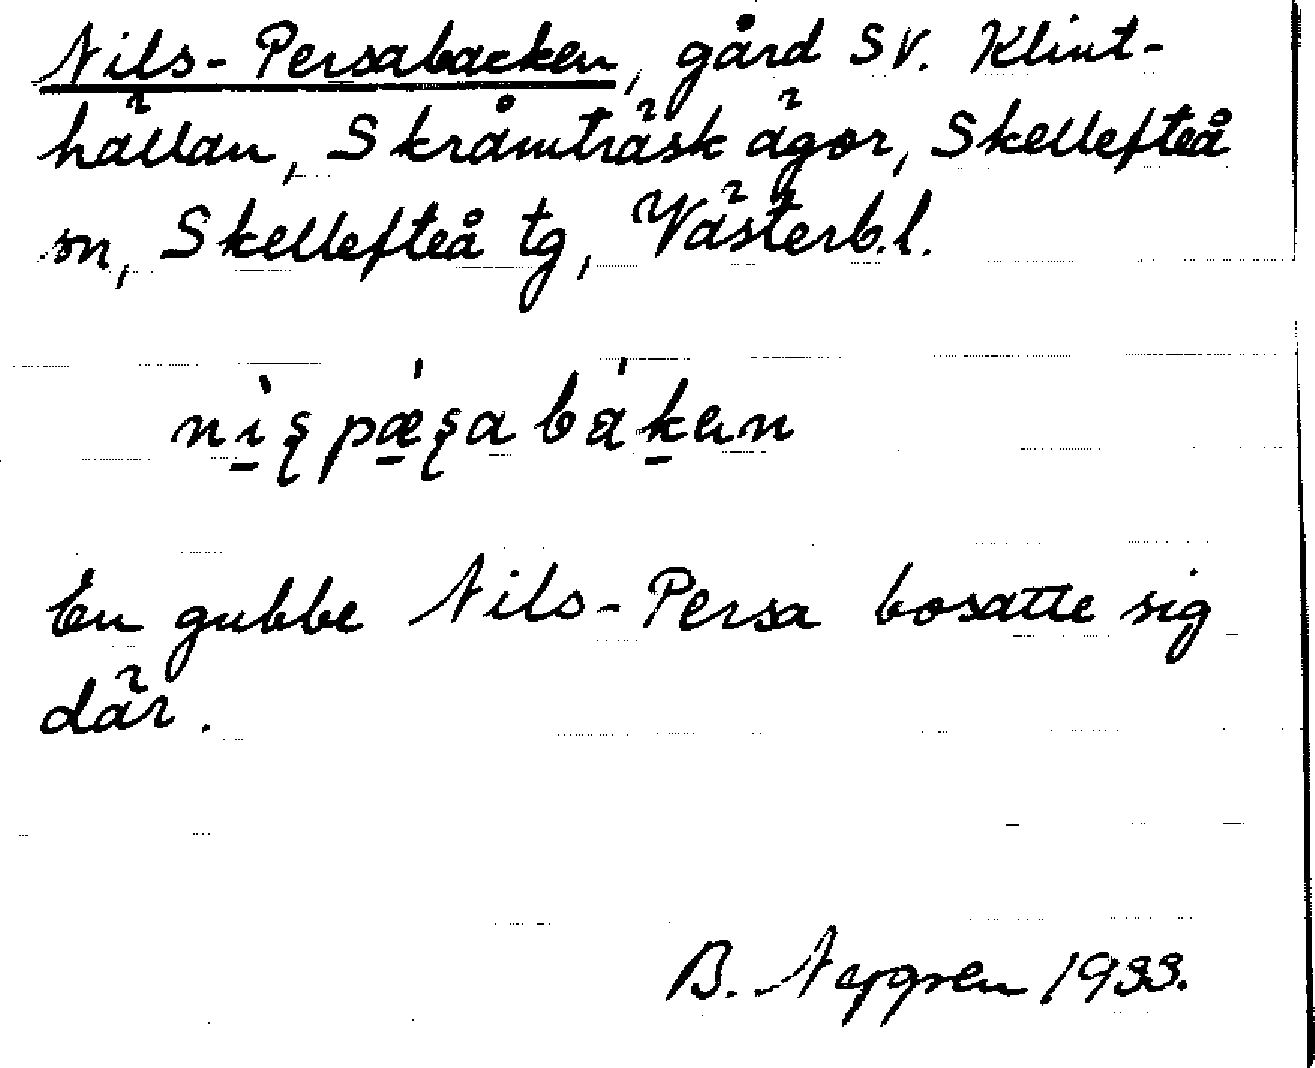 Nils-Persabacken, gård SV. Klint-
hällan, Skråmträsk ägor, Skellefteå
sn, Skellefteå tg, Västerb.l.
nı̲̀ʂpǽ̲ʂabák̲en
En gubbe Nils-Persa bosatte sig
där.
B. Nygren 1933.